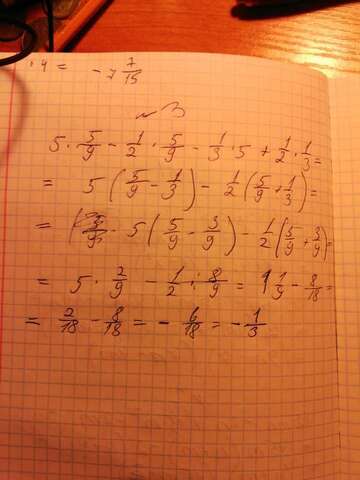 · 4 = - 7 7/15
№ 3
5 · 5/9 - 1/2 · 5/9 - 1/3 · 5 + 1/2 · 1/3 =
= 5 (5/9 - 1/3) - 1/2 (5/9 + 1/3) =
= 5 (5/9 - 3/9) - 1/2 (5/9 + 3/9) =
= 5 · 2/9 - 1/2 · 8/9 = 1 1/9 - 8/18 =
= 2/18 - 8/18 = - 6/18 = - 1/3